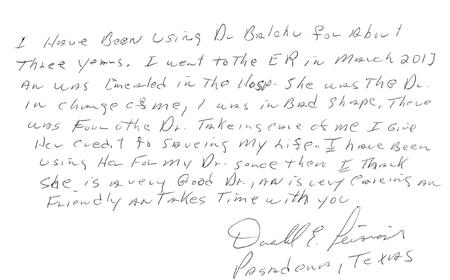 I Have Been Using Dr Balchu for About
Three years. I went to the ER in March 2013
An was Emerled in The Hosp. She was The Dr.
in charge of me, I was in Bad Shape, There
was Four othe Dr. Takeing care of me I Give
Her credit to Saveing my Life. I have Been
using Her For my Dr. sonce then I Thank
She is a very Good Dr., an is very Careing an
Friendly an Takes Time with you
E.
Pasadena, Texas